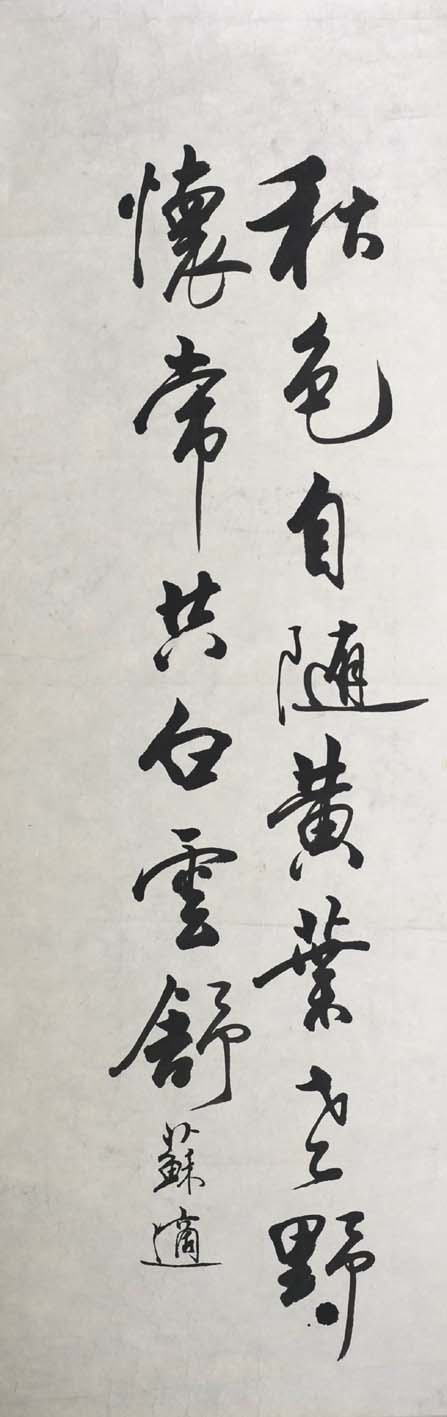 秋色自随黄葉老野
懷常共白雲舒
蘇適